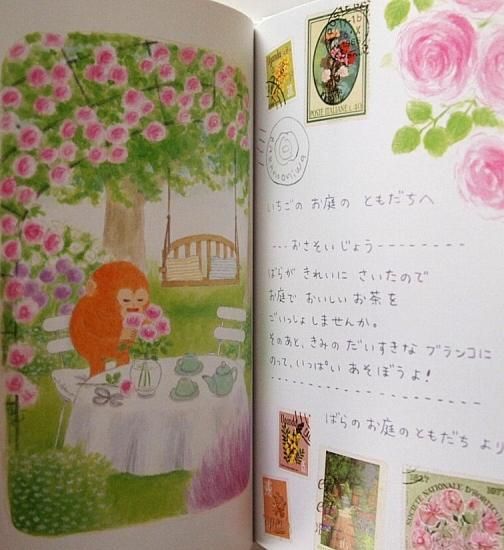 POSTE ITALIANE L.40
BARANONIWA
いちごの お庭の ともだちへ
--- おさそいじょう --------
ばらが きれいに さいたので
お庭で おいしい お茶を
ごいっしょしませんか。
そのあと、きみの だいすきな ブランコに
のって、いっぱい あそぼうよ!
ばらの お庭の ともだち より
SOCIÉTÉ NATIONALE D'HORTICUL